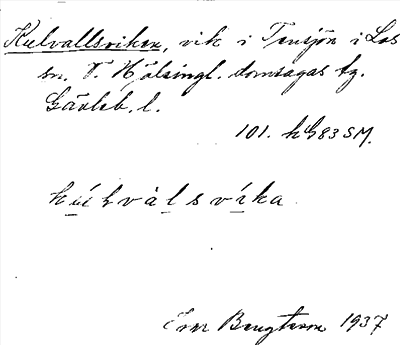 Kulvallsviken, vik i Tensjön i Los
sn. V. Hälsingl. domsagas tg.
Gävleb. l.
101. h G 83 SM.
kúlvàlsvíka
Bengtsson 1937